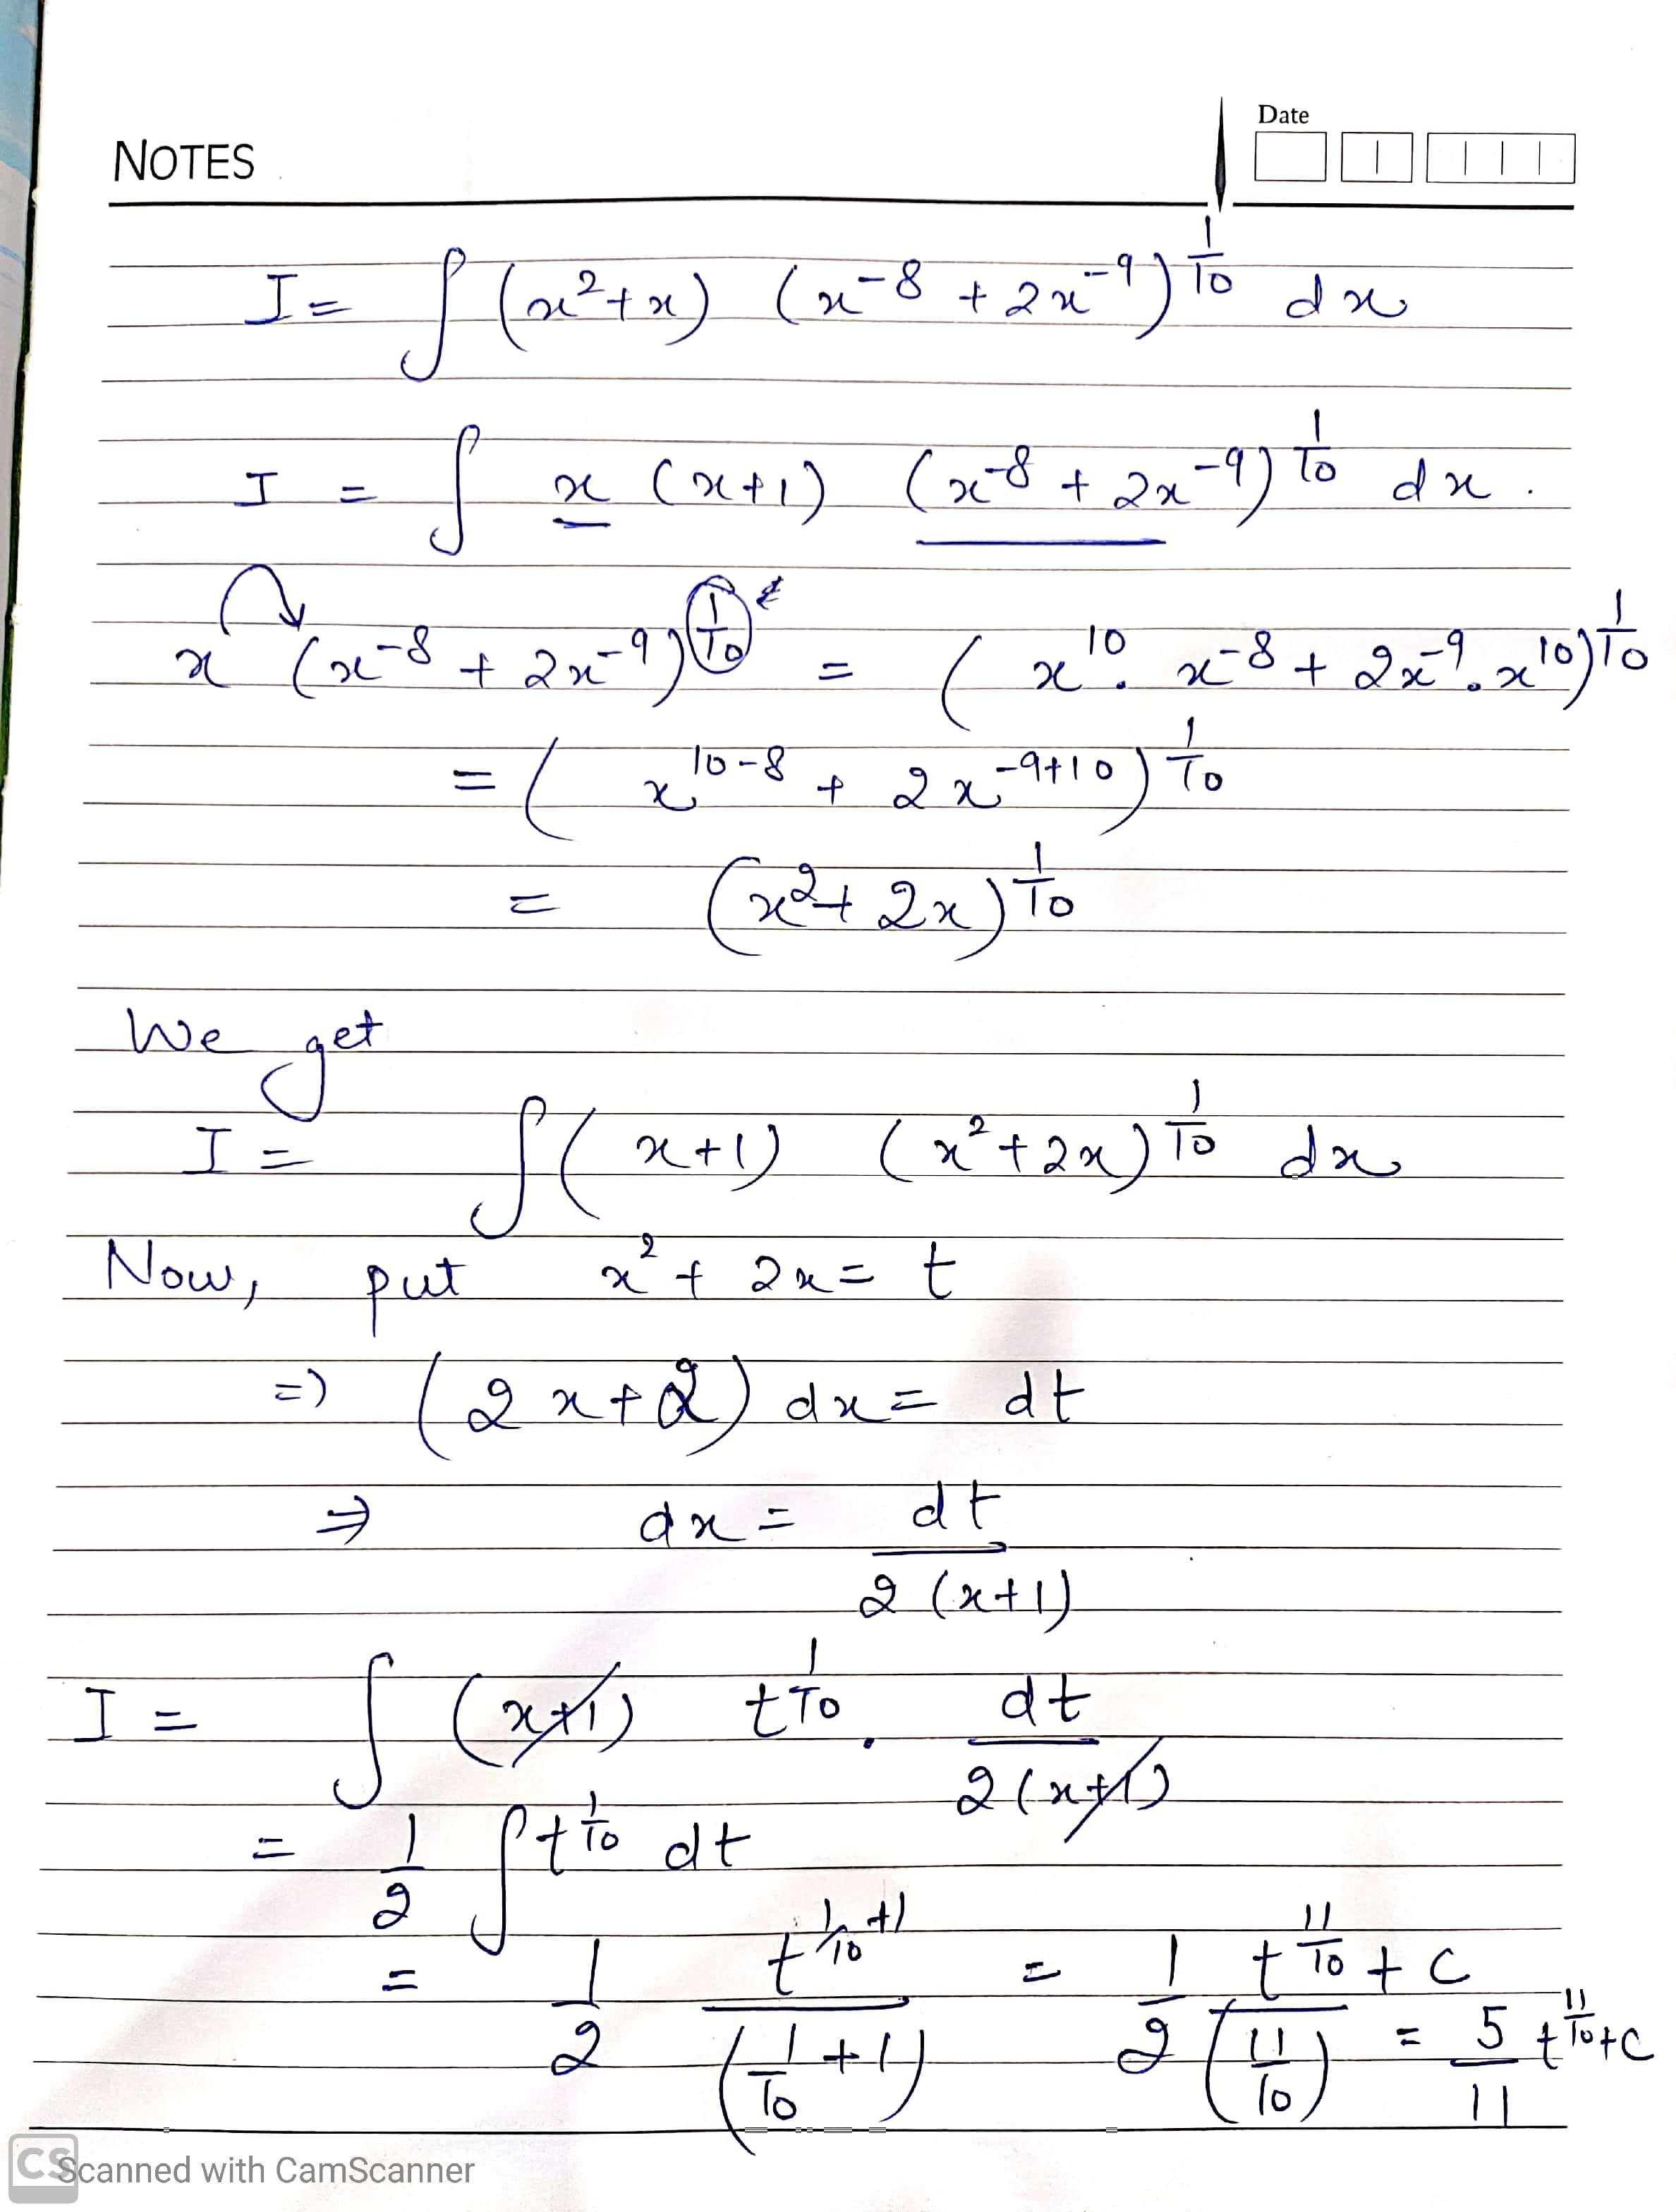 Date
NOTES
I = ∫ (x²+x) (x⁻⁸ + 2x⁻⁹)^(1/10) dx
I = ∫ x (x+1) (x⁻⁸ + 2x⁻⁹)^(1/10) dx.
x (x⁻⁸ + 2x⁻⁹)^(1/10) = (x¹⁰ . x⁻⁸ + 2x⁻⁹ . x¹⁰)^(1/10)
= (x^(10-8) + 2x^(-9+10))^(1/10)
= (x² + 2x)^(1/10)
We get
I = ∫ (x+1) (x²+2x)^(1/10) dx
Now, put x² + 2x = t
=> (2x+2) dx = dt
⇒ dx = dt / 2(x+1)
I = ∫ (x+1) t^(1/10) . dt / 2(x+1)
= 1/2 ∫ t^(1/10) dt
= 1/2 t^(1/10+1) / (1/10 + 1) = 1/2 t^(11/10) / (11/10) + C = 5/11 t^(11/10) + C
CS Scanned with CamScanner